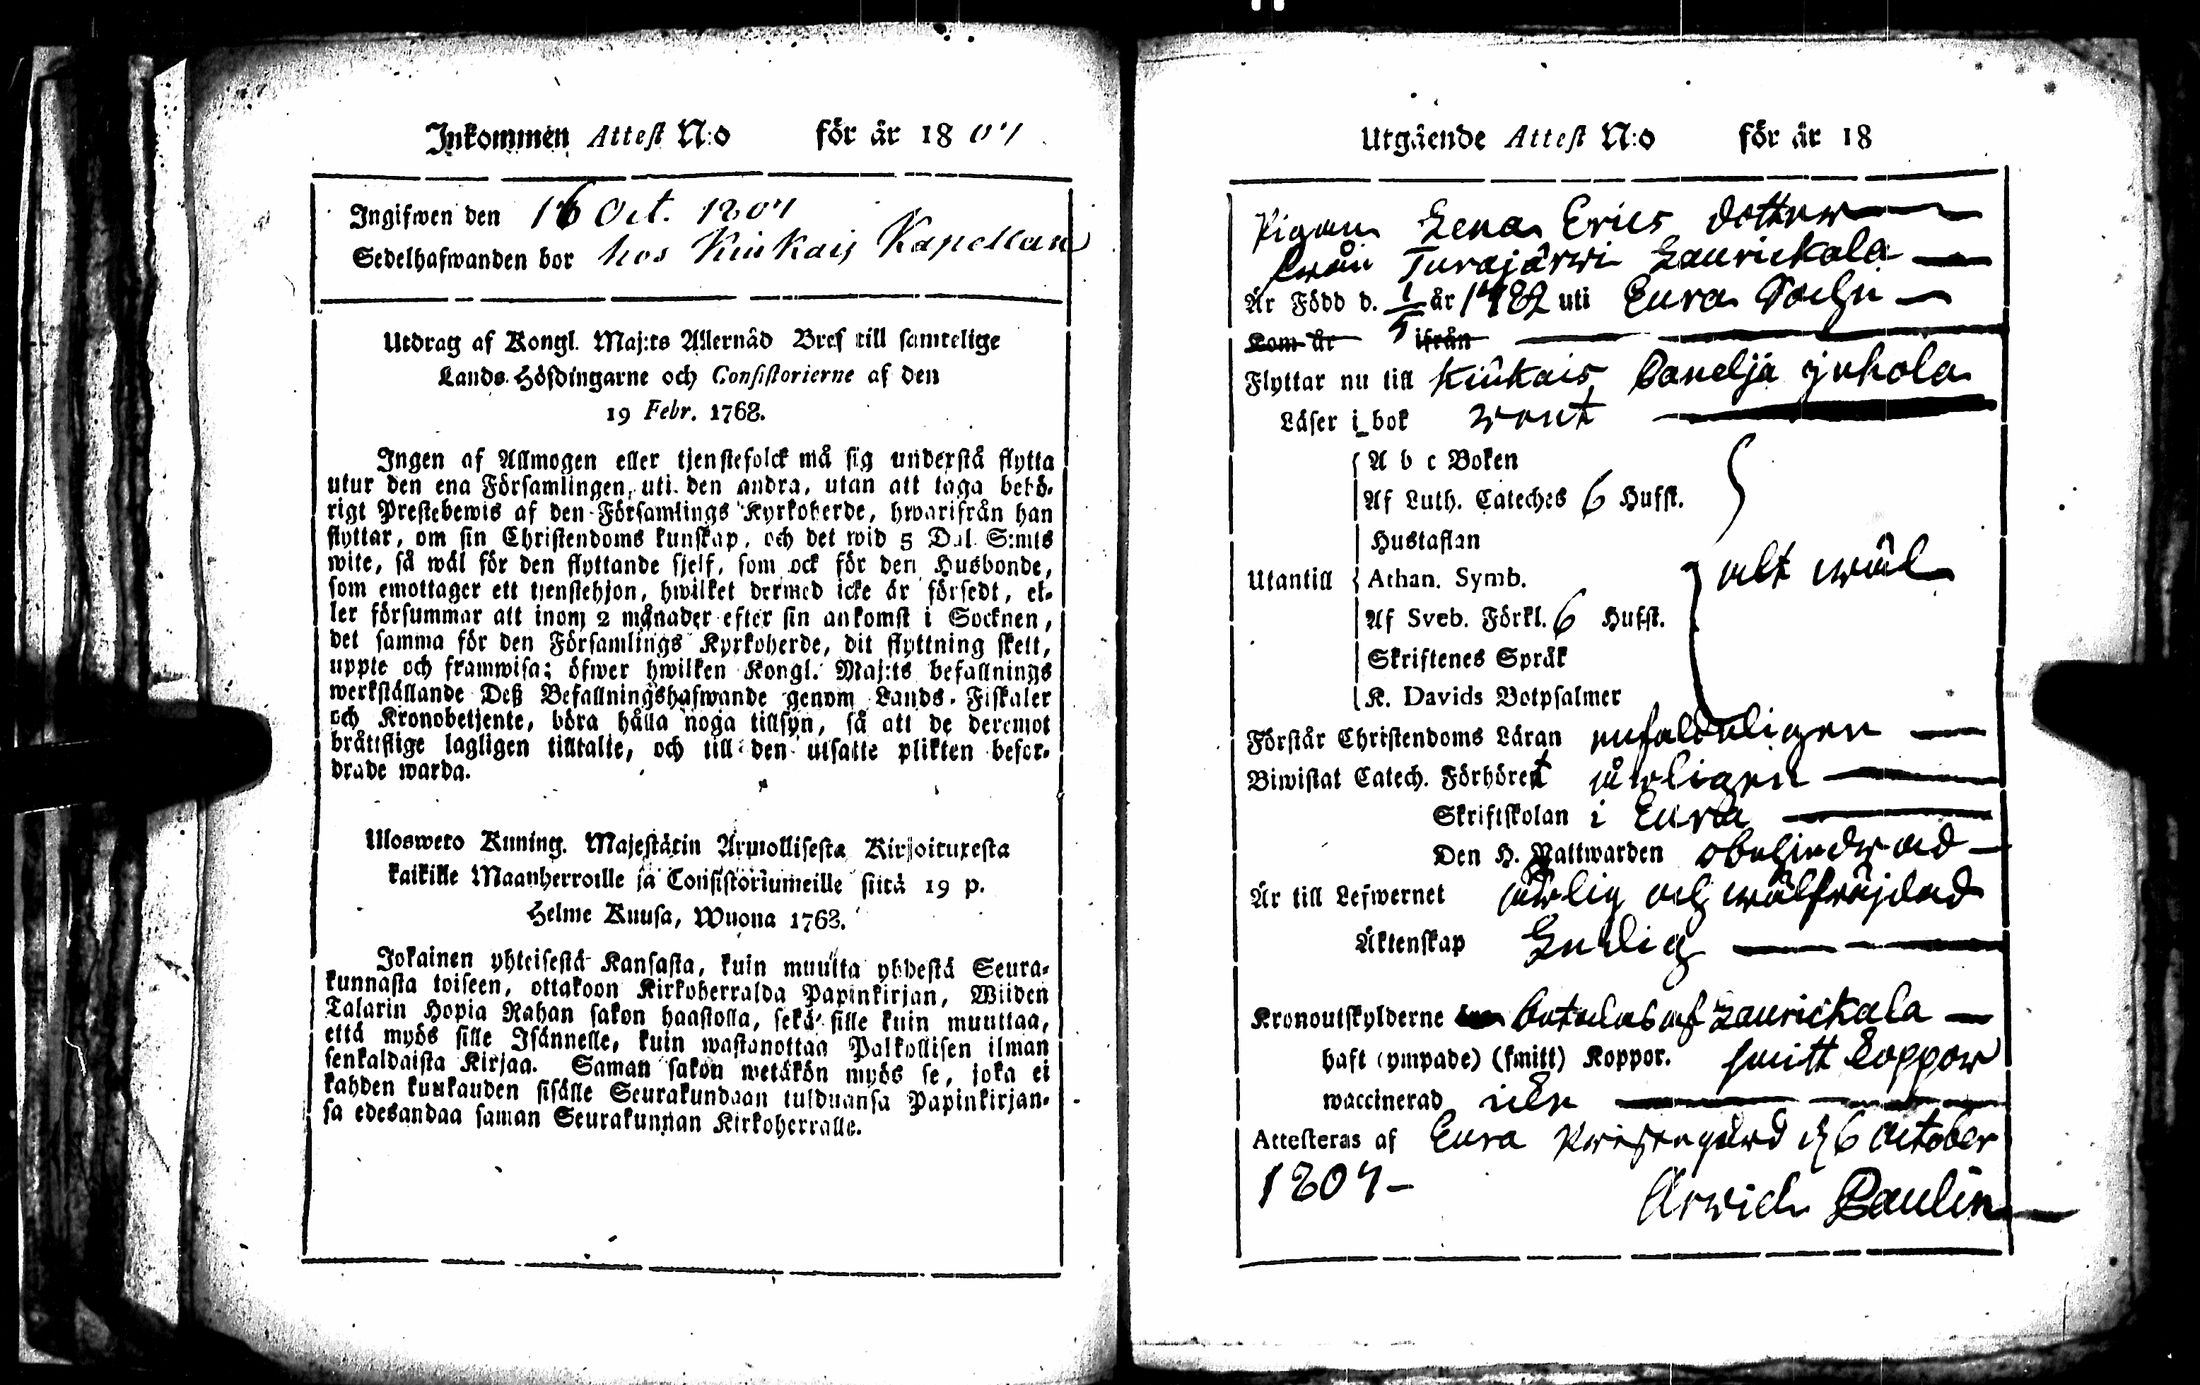 Inkommen Attest N:o för år 1807
Ingifwen den 16 Oct. 1807
Sedelhafwanden bor hos Kiukais Kapellan
Utdrag af Kongl. Maj:ts Allernåd Bref till samtelige
Lands-Höfdingarne och Consistorierne af den
19 Febr. 1768.
Ingen af Allmogen eller tjenstefolck må sig understå flytta
utur den ena Församlingen, uti den andra, utan att taga behö-
rigt Prestebewis af den Församlings Kyrkoherde, hwarifrån han
flyttar, om sin Christendoms kunskap, och det wid 5 Dal. S:mts
wite, så wäl för den flyttande sjelf, som ock för den Husbonde,
som emottager ett tjenstehjon, hwilket dermed icke är försedt, el-
ler försummar att inom 2 månader efter sin ankomst i Socknen,
det samma för den Församlings Kyrkoherde, dit flyttning skett,
uppte och framwisa; öfwer hwilken Kongl. Maj:ts befallnings
werkställande Deß Befallningshafwande genom Lands-Fiskaler
och Kronobetjente, böra hålla noga tillsyn, så att de deremot
bråttslige lagligen tilltalte, och till den utsatte plikten befor-
drade warda.
Ulosweto Kuning. Majestätin Armollisesta Kirjoituxesta
kaikille Maanherroille ja Consistoriumeille siitä 19 p.
Helme Kuusa, Wuona 1768.
Jokainen yhteisestä Kansasta, kuin muutta yhdestä Seura-
kunnasta toiseen, ottakoon Kirkoherralda Papinkirjan, Wiiden
Talarin Hopia Rahan sakon haastolla, sekä sille kuin muuttaa,
että myös sille Isännelle, kuin wastanottaa Palkollisen ilman
senkaldaista Kirjaa. Saman sakon wetäkön myös se, joka ei
kahden kuukauden sisälle Seurakundaan tulduansa Papinkirjan-
sa edesandaa saman Seurakunnan Kirkoherralle.
Utgående Attest N:o för år 18
Pigan Lena Erics dotter
från Turajärwi Laurickala
Är Född d. 1/5 år 1782 uti Eura Sochn
Kom år ifrån
Flyttar nu till Kiukais Paneljä
Läser i bok want
A b c Boken
Af Luth. Cateches 6 Hufst.
Hustaflan
Utantill Athan. Symb. alt wäl
Af Sveb. Förkl. 6 Hufst.
Skriftenes Språk
K. Davids Botpsalmer
Förstår Christendoms Läran enfaldeligen
Biwistat Catech. Förhöret årligen
Skriftskolan i Eura
Den H. Nattwarden obehindrad
Är till Lefwernet ärlig och wälfräjdad
Äktenskap Ledig
Kronoutskylderne betalas af Laurickala
haft (ympade) (smitt) Koppor. smitt koppor
waccinerad icke
Attesteras af Eura Prestegård d. 6 October
1807
Arwid Paulin